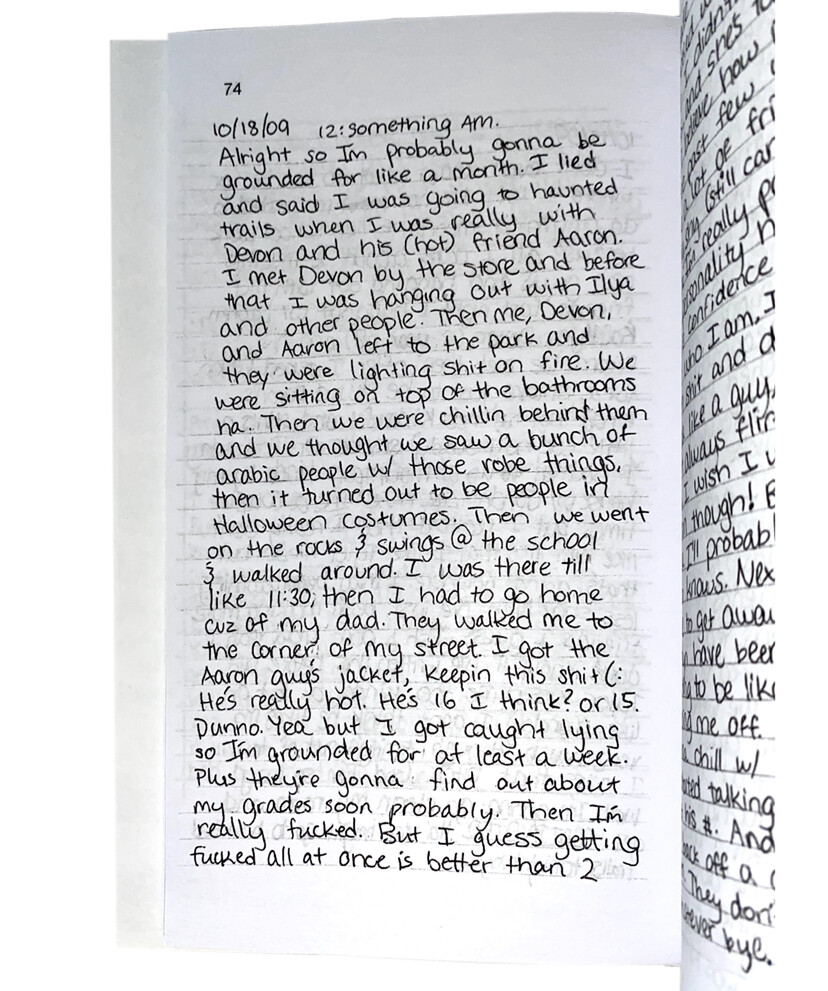 74
10/18/09 12:something AM.
Alright so Im probably gonna be
grounded for like a month. I lied
and said I was going to haunted
trails when I was really with
Devon and his (hot) friend Aaron.
I met Devon by the store and before
that I was hanging out with Ilya
and other people. Then me, Devon,
and Aaron left to the park and
they were lighting shit on fire. We
were sitting on top of the bathrooms
ha. Then we were chillin behind them
and we thought we saw a bunch of
arabic people w/ those robe things,
then it turned out to be people in
Halloween costumes. Then we went
on the rocks & swings @ the school
& walked around. I was there till
like 11:30, then I had to go home
cuz of my dad. They walked me to
the corner of my street. I got the
Aaron guy's jacket, keepin this shit (:
He's really hot. He's 16 I think? or 15.
Dunno. Yea but I got caught lying
so I'm grounded for at least a week.
Plus they're gonna find out about
my grades soon probably. Then I'm
really fucked. But I guess getting
fucked all at once is better than 2
didn't
and she's
how
past few
lot of fri
(still car
really
personality
confidence
who I am. I
shit and d
like a guy,
always flir
wish I
though! 
I'll probabl
knows. Nex
to get away
have been
to be like
me off.
chill w/
talking
his #. And
back off a
They don'
bye.